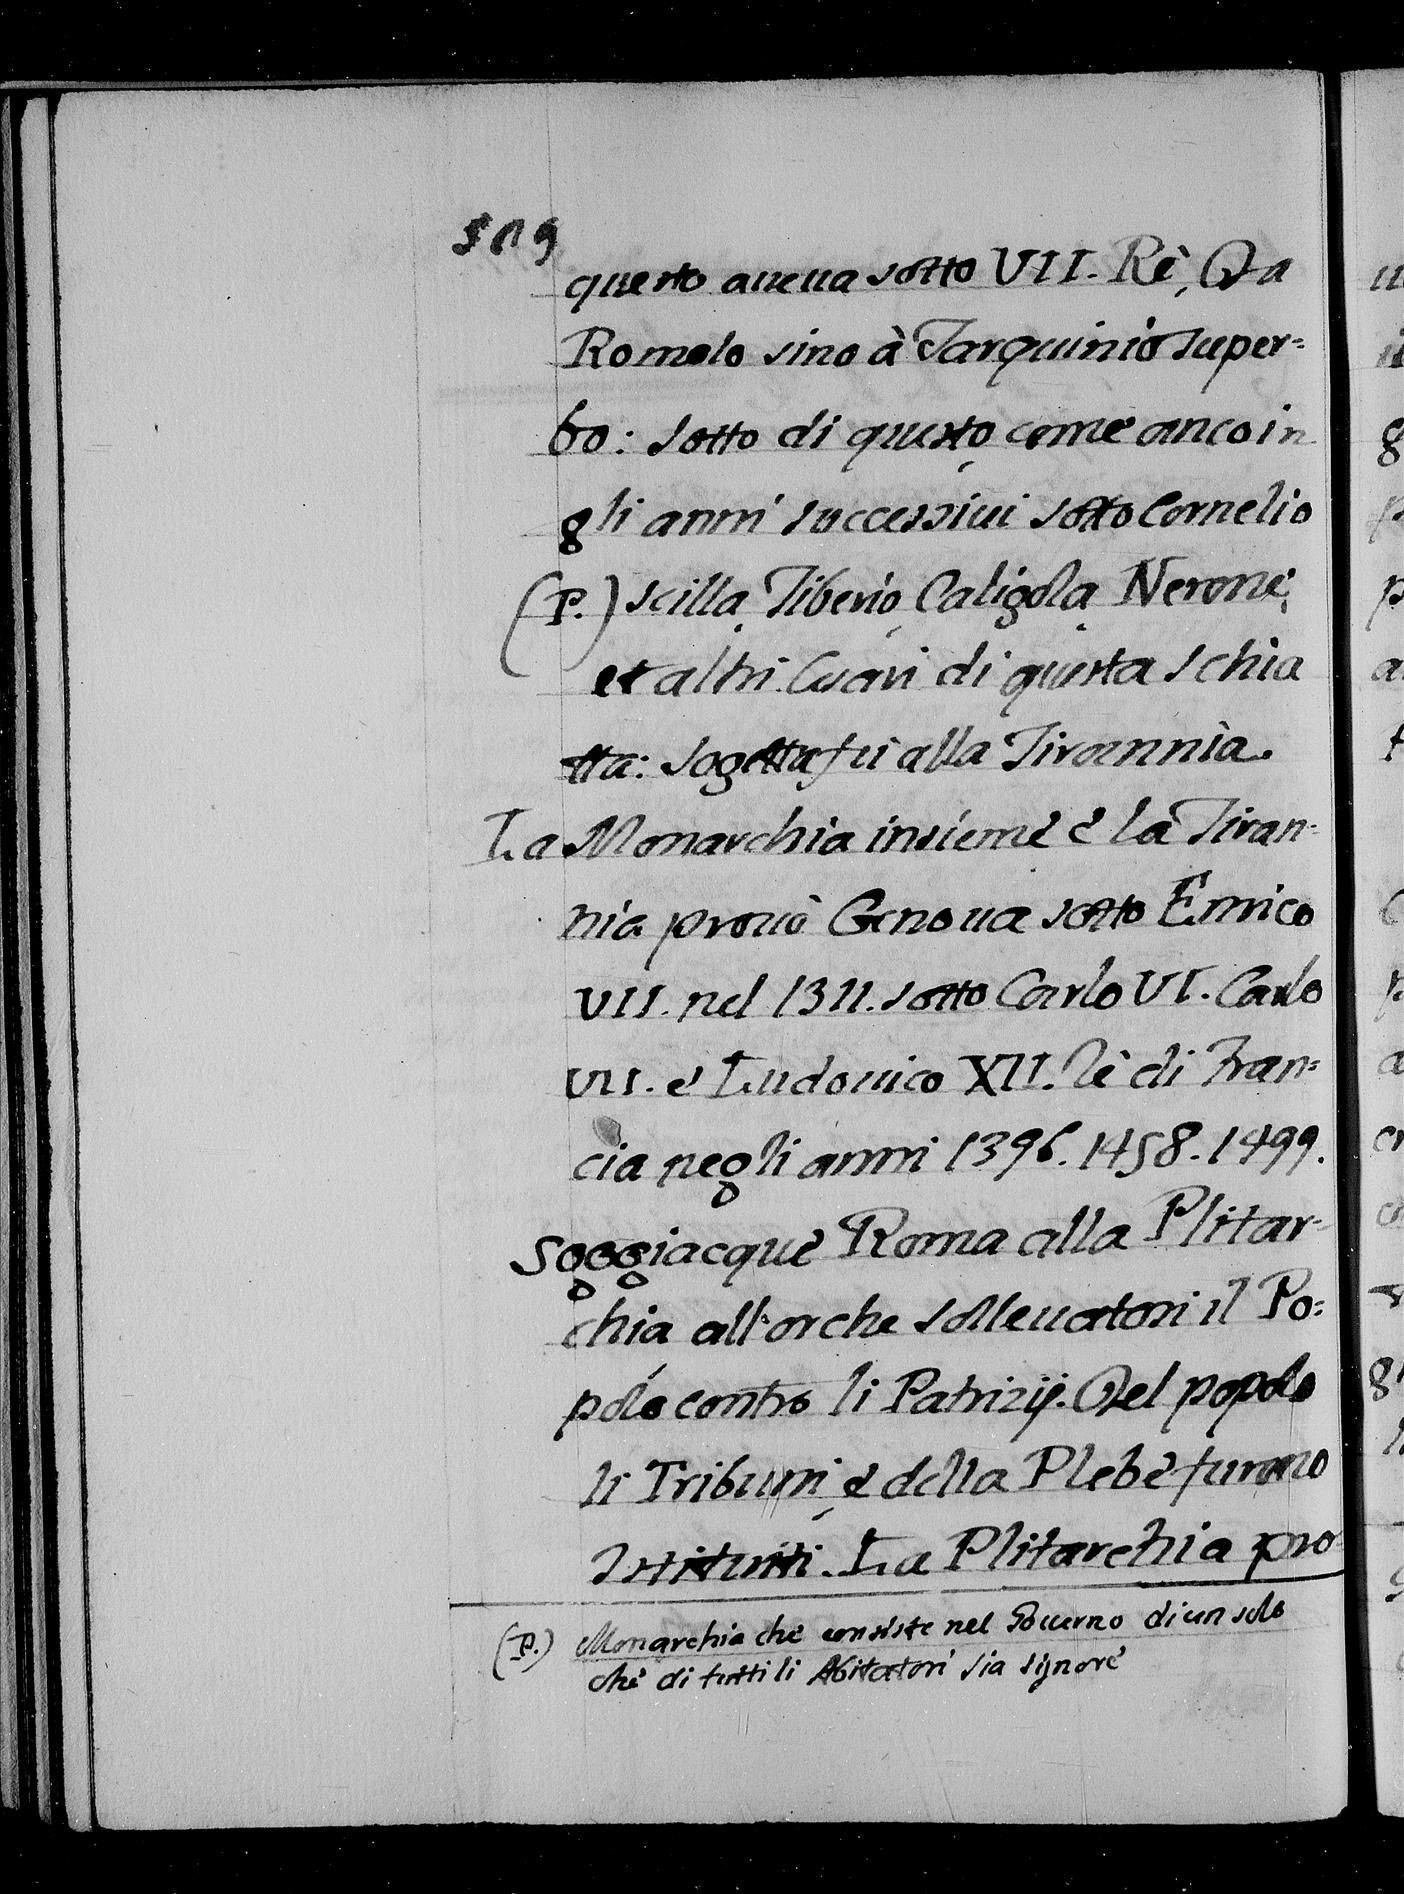 509
questo aueua sotto VII. Rè, Da
Romolo sino à Tarquinio super=
bo: sotto di questo, come anco in
gli anni successiui sotto Cornelio
(P.) Scilla, Tiberio, Caligola, Nerone,
et altri Cesari di questa schia
tta: sogetta fù alla Tirannia.
La Monarchia insieme è la Tiran=
nia prouò Genoua sotto Enrico
VII. nel 1311. sotto Carlo VI. Carlo
VII. e Ludouico XII. Rè di Fran=
cia negli anni 1396. 1458. 1499.
Soggiacque Roma alla Plitar=
chia all'or che solleuatosi il Po=
polo contro li Patrizij. Del popolo
li Tribuni, e della Plebe furono
istituiti. La Plitarchia pro
(P.) Monarchia che consiste nel Gouerno di un solo
che di tutti li Abitatori sia signore